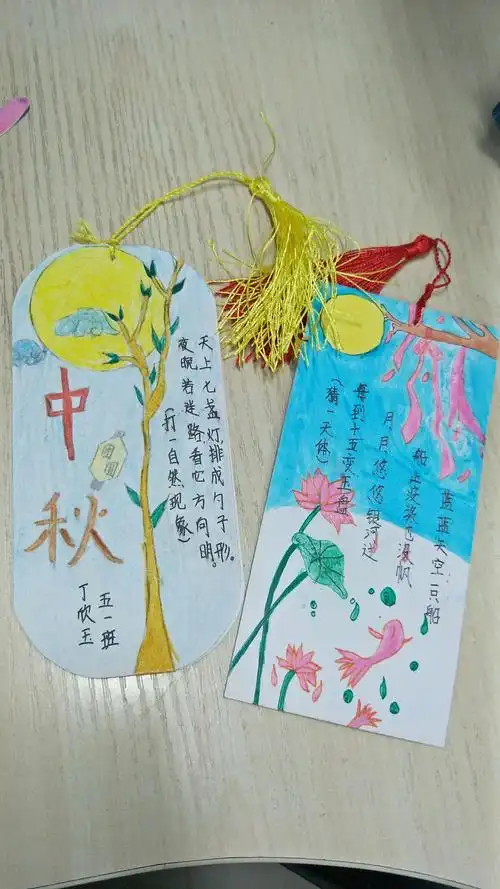 中秋
团圆
天上七盏灯,排成勺子形。
夜晚若迷路,看它方向明。
(打一自然现象)
五一班
丁欣玉
蓝蓝天空一只船
船上没桨也没帆
月月悠悠银河边
每到十五变玉盘
(猜一天体)